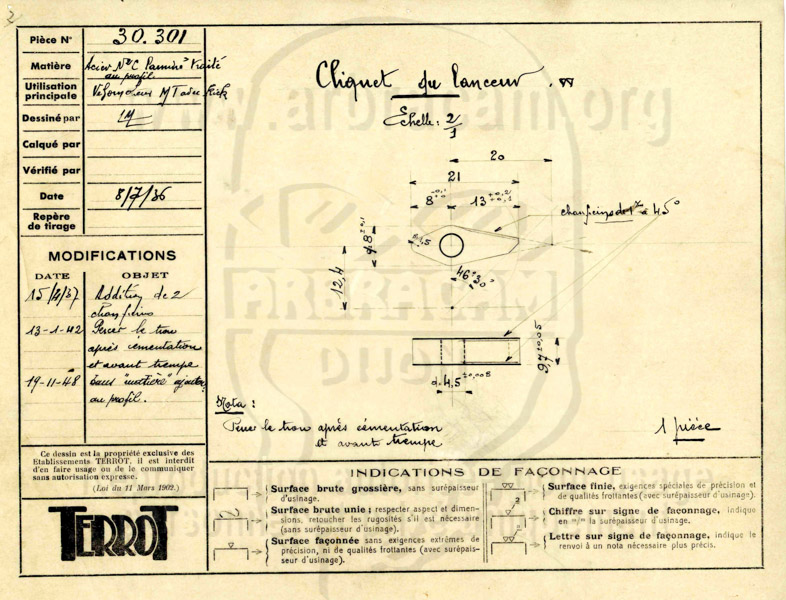 Pièce N° 30.301
Matière Acier N°C traité
au profil
Utilisation
principale Kick
Dessiné par
Calqué par
Vérifié par
Date 8/7/36
Repère
de tirage
MODIFICATIONS
DATE OBJET
Addition de 2
chanfreins
13-1-42 Percer le trou
après cémentation
et avant trempe
19-11-48 Dans "matière" ajouter
au profil.
Ce dessin est la propriété exclusive des
Etablissements TERROT, il est interdit
d'en faire usage ou de le communiquer
sans autorisation expresse.
(Loi du 11 Mars 1902.)
TERROT
Cliquet du lanceur
Echelle: 2/1
20
21
8
13 +0,2 +0,1
chanfreins de 1 à 45°
12,4
46° ±30'
9,7 ±0,05
d. 4,5 ±0,005
Nota:
Percer le trou après cémentation
et avant trempe
1 pièce
INDICATIONS DE FAÇONNAGE
Surface brute grossière, sans surépaisseur
d'usinage.
Surface brute unie; respecter aspect et dimen-
sions, retoucher les rugosités s'il est nécessaire
(sans surépaisseur d'usinage).
Surface façonnée sans exigences extrêmes de
précision, ni de qualités frottantes (avec surépais-
seur d'usinage).
Surface finie, exigences spéciales de précision et
de qualités frottantes (avec surépaisseur d'usinage).
Chiffre sur signe de façonnage, indique
en m/m la surépaisseur d'usinage.
Lettre sur signe de façonnage, indique le
renvoi à un nota nécessaire plus précis.
www.arbracam.org
ARBRACAM